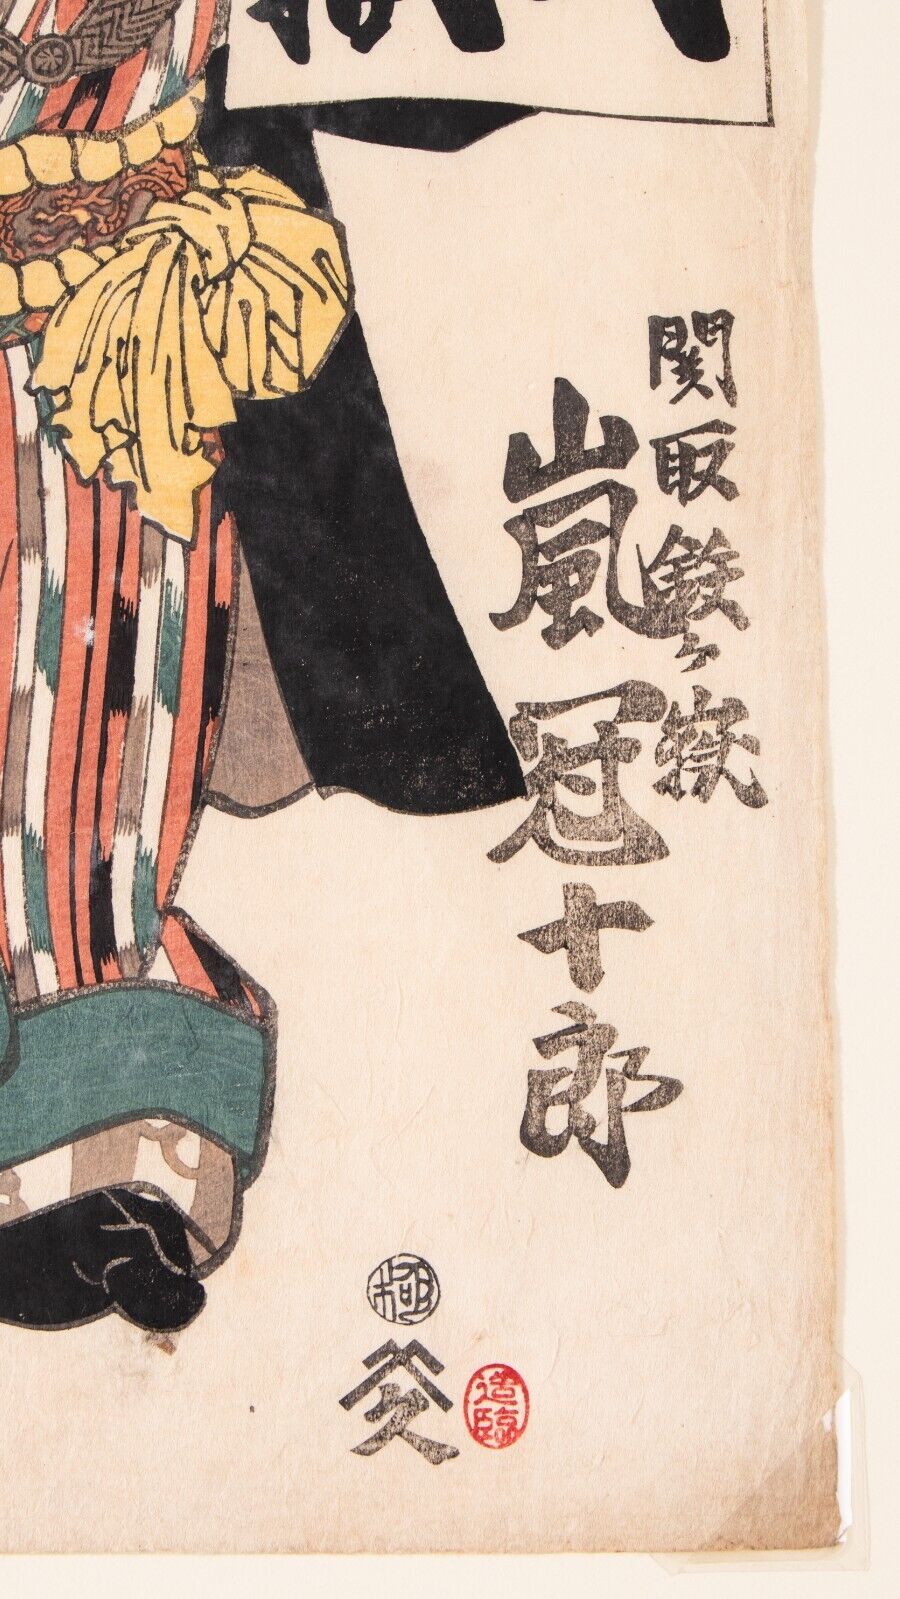 関取鉄ヶ嶽
嵐冠十郎
極